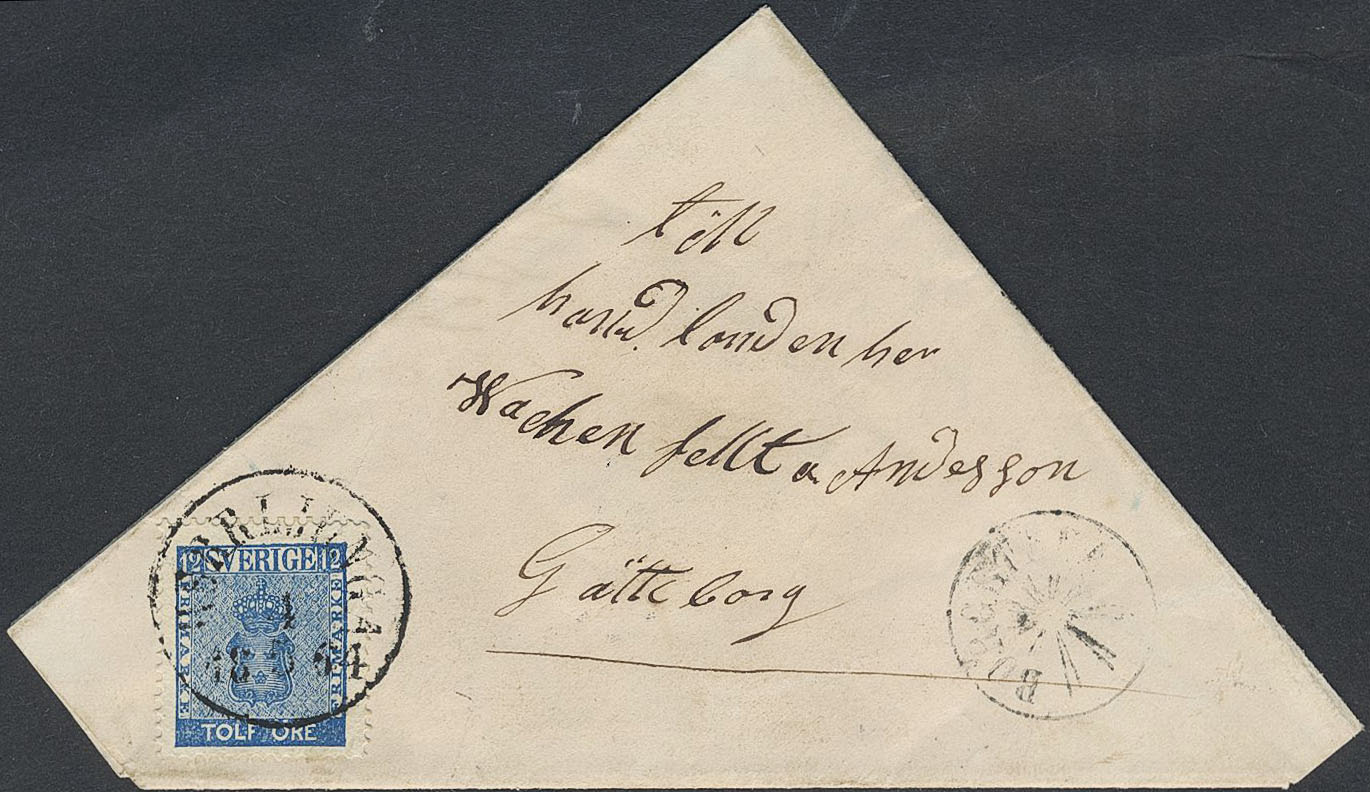 till
hand landen her
Wachen feltt u Andesson
Götteborg
12 SVERIGE 12
FRIMÄRKE
FRIMÄRKE
TOLF ÖRE
HERRLJUNGA
4
1864